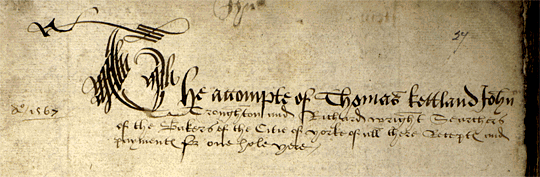 The accompte of Thomas kettland John
Aº 1567
Troughton and Richard wright Searchers
of the Bakers of the Citie of yorke of all there Recepte and
paymente for one hole yere